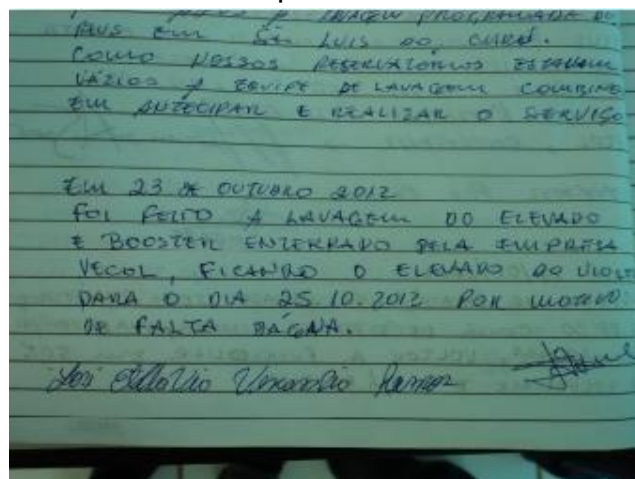 LAVAGEM PROGRAMADA DO
EM SÃO LUIS DO CURU.
COMO NOSSOS RESERVATÓRIOS ESTAVAM
VAZIOS A EQUIPE DE LAVAGEM COMBINE
EM ANTECIPAR E REALIZAR O SERVIÇO
EM 23 DE OUTUBRO 2012
FOI FEITO A LAVAGEM DO ELEVADO
E BOOSTER ENTERRADO PELA EMPRESA
VECOL, FICANDO O ELEVADO DO
PARA O DIA 25.10.2012 POR MOTIVO
DE FALTA DÁGUA.